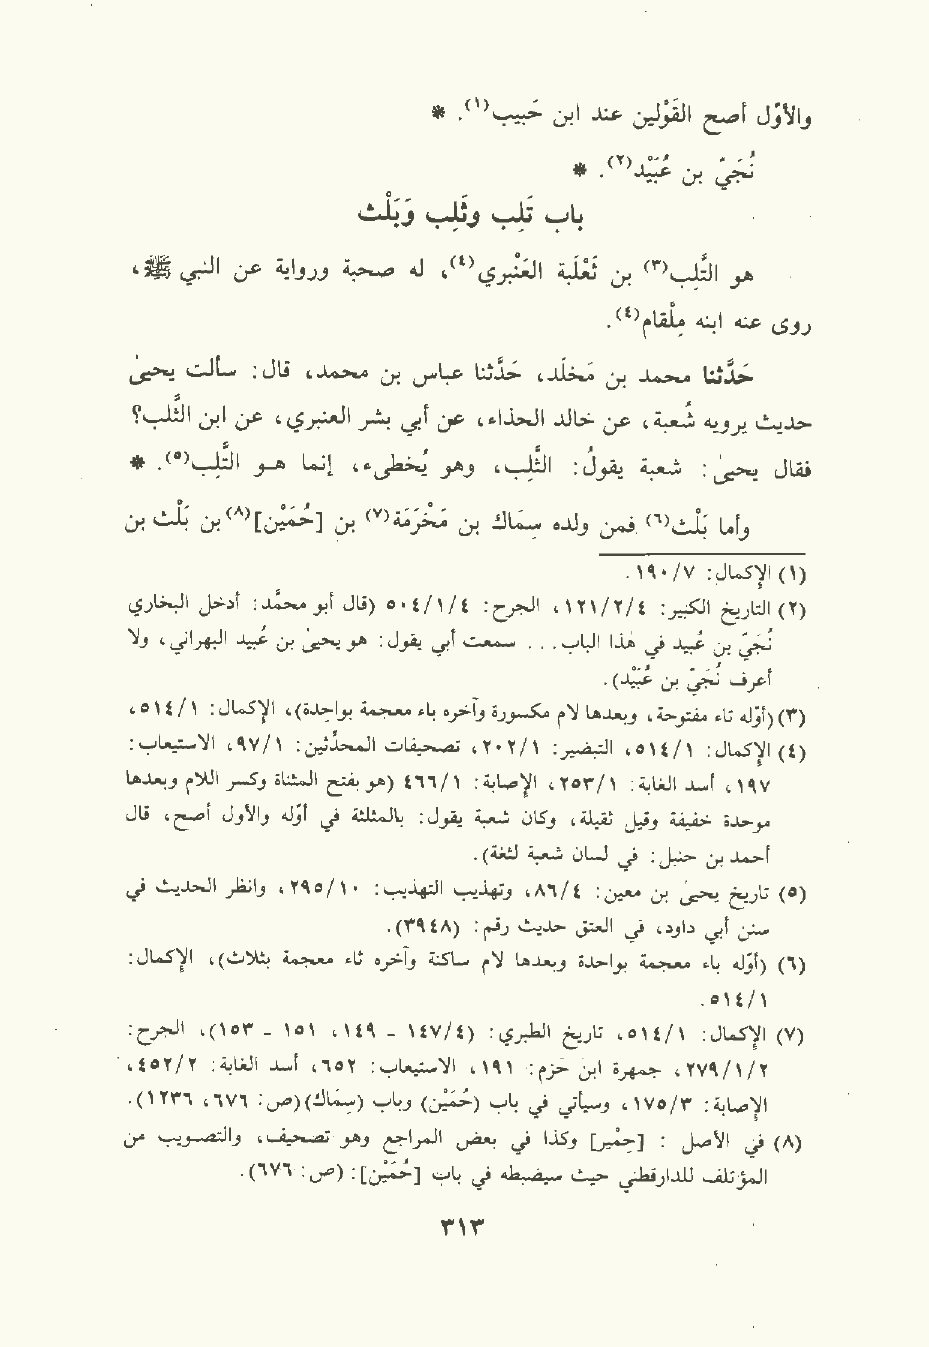 والأوّل أصح القَوْلين عند ابن حَبيب(١). *
نُجَيّ بن عُبَيْد(٢). *
باب تَلِب وثَلِب وَبَلْث
هو التَّلِب(٣) بن ثَعْلَبة العَنْبري(٤)، له صحبة ورواية عن النبي ﷺ،
روى عنه ابنه مِلْقام(٤).
حَدَّثنا محمد بن مَخلَد، حَدَّثنا عباس بن محمد، قال: سألت يحيىٰ
حديث يرويه شُعبة، عن خالد الحذاء، عن أبي بشر العنبري، عن ابن الثَّلب؟
فقال يحيىٰ: شعبة يقولُ: الثَّلِب، وهو يُخطىء، إنما هو التَّلِب(٥). *
وأما بَلْث(٦) فمن ولده سِمَاك بن مَخْرَمَة(٧) بن [حُمَيْن](٨) بن بَلْث بن
(١) الإكمال: ١٩٠/٧.
(٢) التاريخ الكبير: ١٢١/٢/٤، الجرح: ٥٠٤/١/٤ (قال أبو محمّد: أدخل البخاري
نُجَيّ بن عُبيد في هذا الباب... سمعت أبي يقول: هو يحيىٰ بن عُبيد البهراني، ولا
أعرف نُجَيّ بن عُبَيْد).
(٣) (أوّله تاء مفتوحة، وبعدها لام مكسورة وآخره باء معجمة بواحِدة)، الإكمال: ٥١٤/١،
(٤) الإكمال: ٥١٤/١، التبضير: ٢٠٢/١، تصحيفات المحدّثين: ٩٧/١، الاستيعاب:
١٩٧، أسد الغابة: ٢٥٣/١، الإصابة: ٤٦٦/١ (هو بفتح المثناة وكسر اللام وبعدها
موحدة خفيفة وقيل ثقيلة، وكان شعبة يقول: بالمثلثة في أوّله والأول أصح، قال
أحمد بن حنبل: في لسان شعبة لثغة).
(٥) تاريخ يحيىٰ بن معين: ٨٦/٤، وتهذيب التهذيب: ٢٩٥/١٠، وانظر الحديث في
سنن أبي داود، في العتق حديث رقم: (٣٩٤٨).
(٦) (أوّله باء معجمة بواحدة وبعدها لام ساكنة وآخره ثاء معجمة بثلاث)، الإكمال:
٥١٤/١.
(٧) الإكمال: ٥١٤/١، تاريخ الطبري: (١٤٧/٤ - ١٤٩، ١٥١ - ١٥٣)، الجرح:
٢٧٩/١/٢، جمهرة ابن حَزم: ١٩١، الاستيعاب: ٦٥٢، أسد الغابة: ٤٥٢/٢،
الإصابة: ١٧٥/٣، وسيأتي في باب (حُمَيْن) وباب (سِمَاك)(ص: ٦٧٦، ١٢٣٦).
(٨) في الأصل : [حِمْير] وكذا في بعض المراجع وهو تصحيف، والتصويب من
المؤتلف للدارقطني حيث سيضبطه في باب [حُمَيْن]: (ص: ٦٧٦).
٣١٣